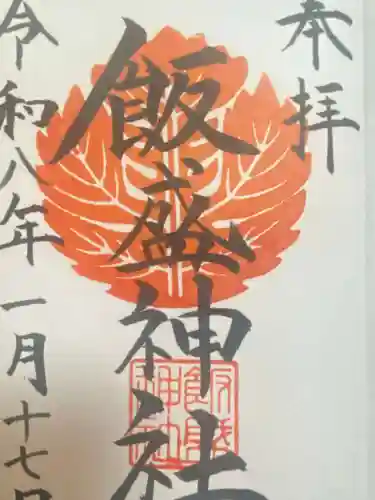 奉拝
飯盛神社
飯盛神社
令和八年一月十七日